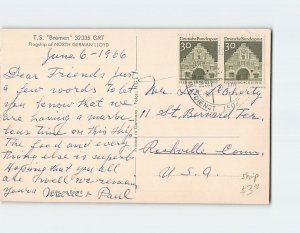 T.S. "Bremen" 32335 GRT
Flagship of NORTH GERMAN LLOYD
June 6 - 1966
Dear Friends Just
a few words to let
you know that we
are having a marve-
lous time on this ship
The food and every
thing else is superb
Hoping that you all
are well we remain
Yours Paul
Deutsche Bundespost
30
Deutsche Bundespost
30
Mr.
11 St. Bernard Ter.
Rockville Conn.
U.S.A
Ship